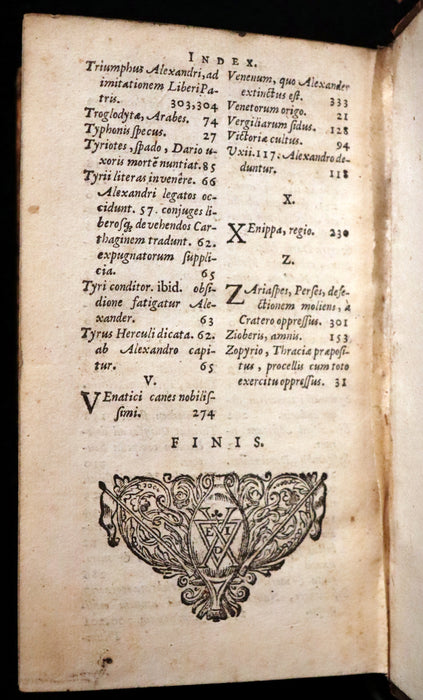 INDEX.
Triumphus Alexandri, ad
imitationem Liberi Pa-
tris. 303,304
Troglodytæ, Arabes. 74
Typhonis specus. 27
Tyriotes, spado, Dario u-
xoris mortẽ nuntiat. 85
Tyrii literas invenêre. 66
Alexandri legatos oc-
cidunt. 57. conjuges li-
berosq; devehendos Car-
thaginem tradunt. 62.
expugnatorum suppli-
cia. 65
Tyri conditor. ibid. obsi-
dione fatigatur Ale-
xander. 63
Tyrus Herculi dicata. 62.
ab Alexandro capi-
tur. 65
V.
VEnatici canes nobilis-
simi. 274
Venenum, quo Alexander
extinctus est. 333
Venetorum origo. 21
Vergiliarum sidus. 128
Victoriæ cultus. 94
Vxii. 117. Alexandro de-
duntur. 118
X.
XEnippa, regio. 230
Z.
ZAriaspes, Perses, defe-
ctionem moliens, à
Cratero oppressus. 301
Zioberis, amnis. 153
Zopyrio, Thraciæ præposi-
tus, procellis cum toto
exercitu oppressus. 31
FINIS.